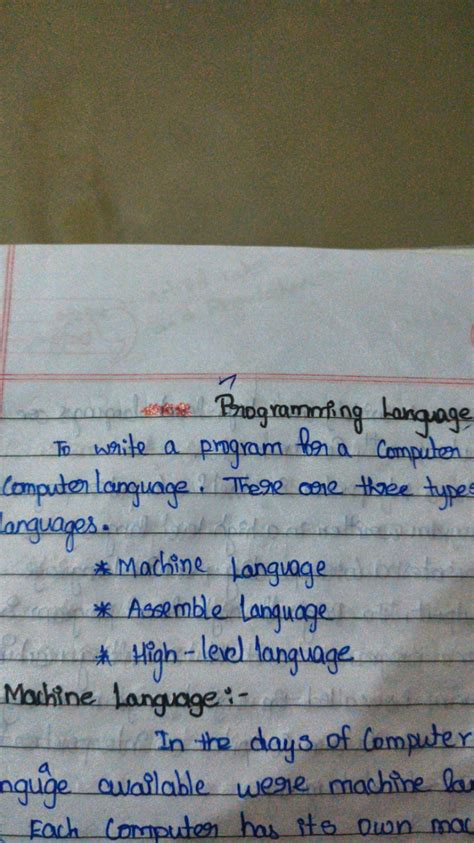 Programming Language
To write a program for a Computer
Computer language. There are three types
languages.
* Machine Language
* Assemble Language
* High-level language
Machine Language:-
In the days of Computer
nguage available were machine la
Each Computer has its own mac